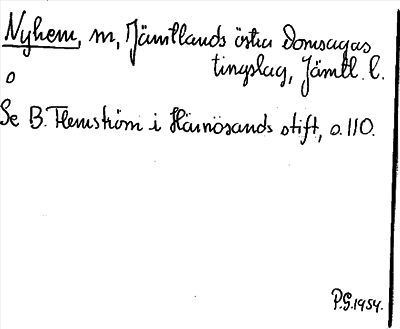 Nyhem, m, Jämtlands östra domsagas
tingslag, Jämtl. l.
o
Se B. Flemström i Härnösands stift, s. 110.
P.G. 1954.